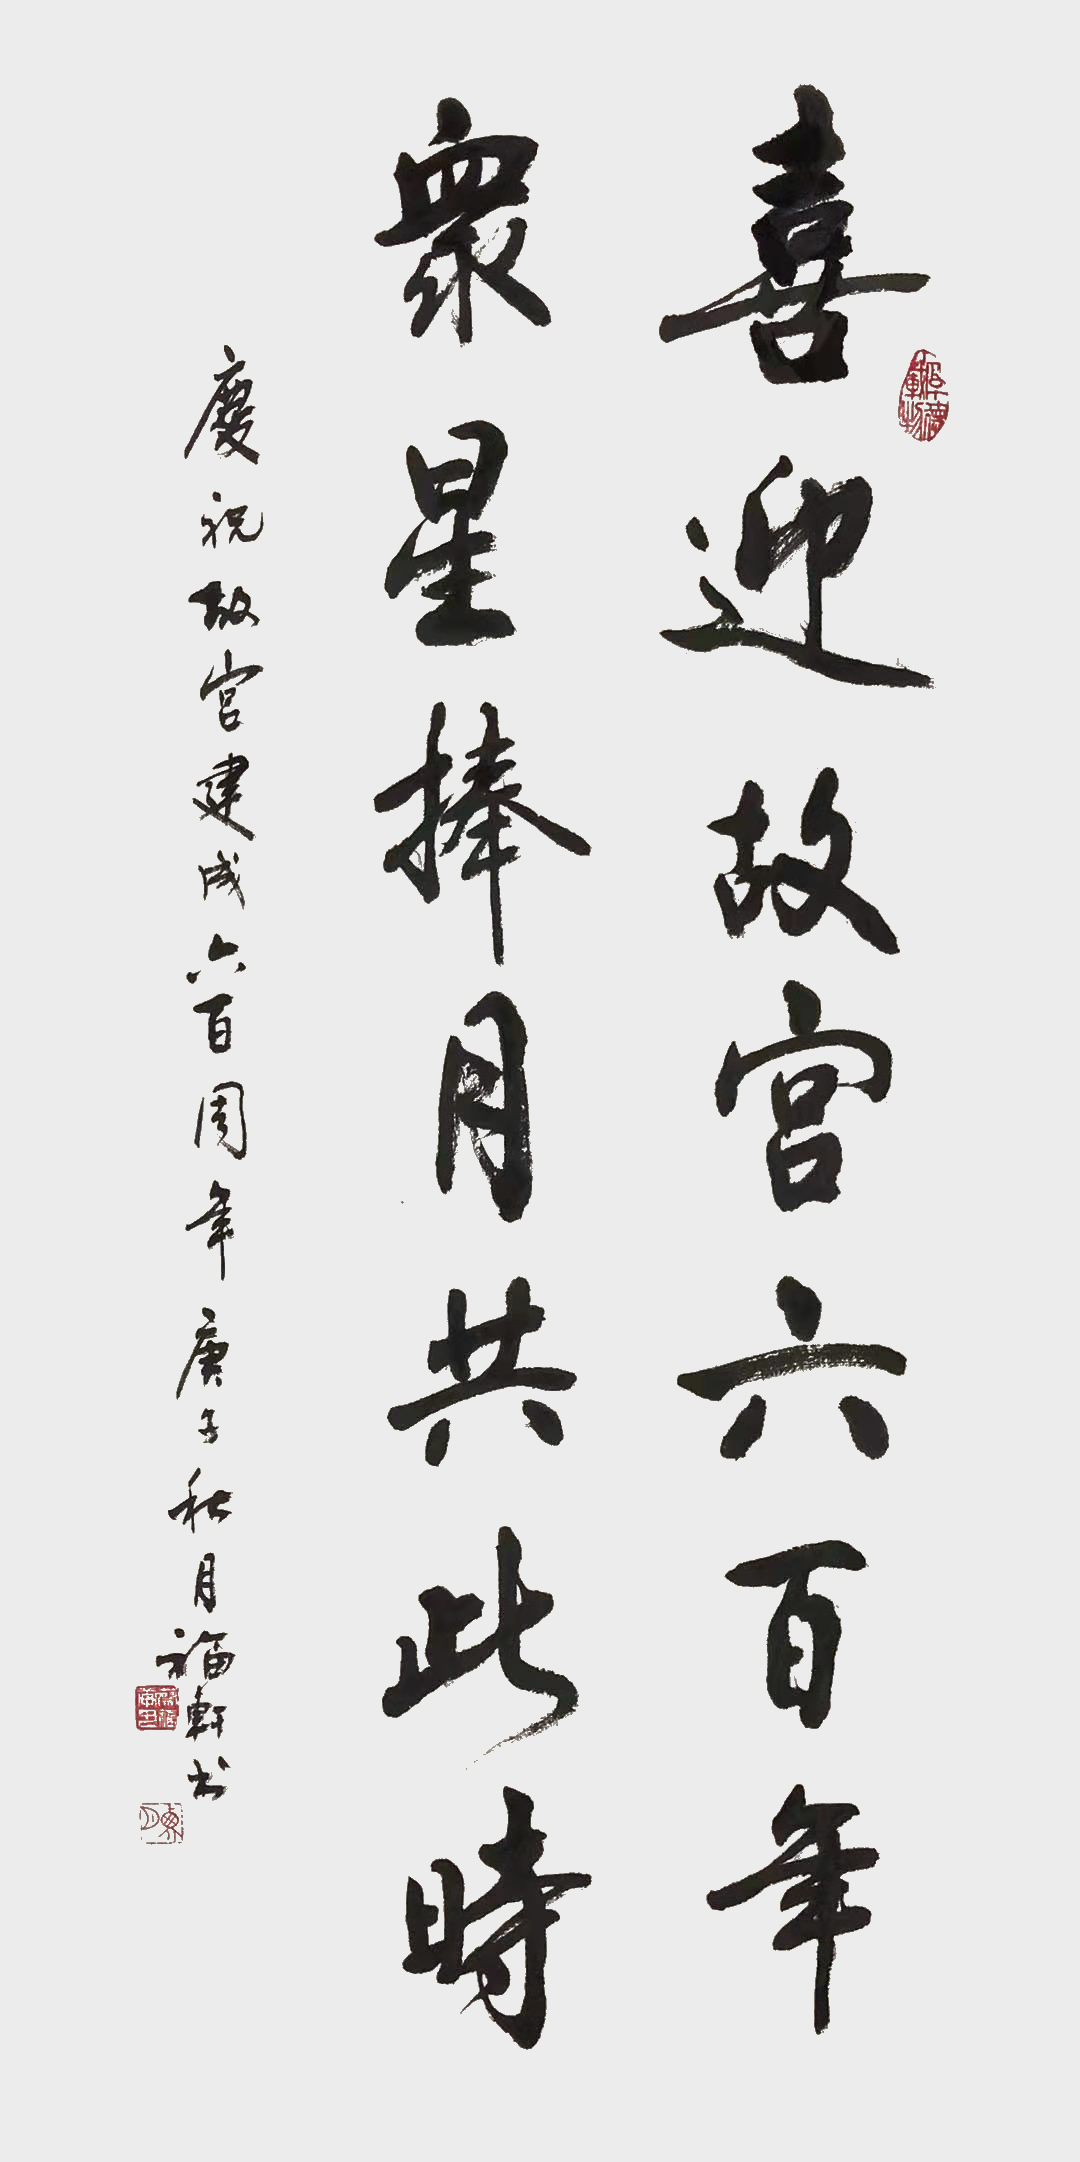 喜迎故宮六百年
眾星捧月共此時
慶祝故宮建成六百周年庚子秋月福軒书